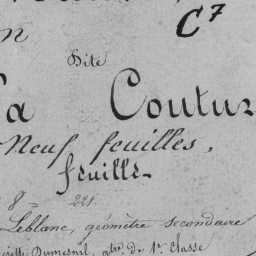 C⁷
n
Dite
a Coutur
Neuf feuilles.
feuille
8 = 221.
Leblanc, géomètre secondaire
Dumesnil, géom. de 1re classe